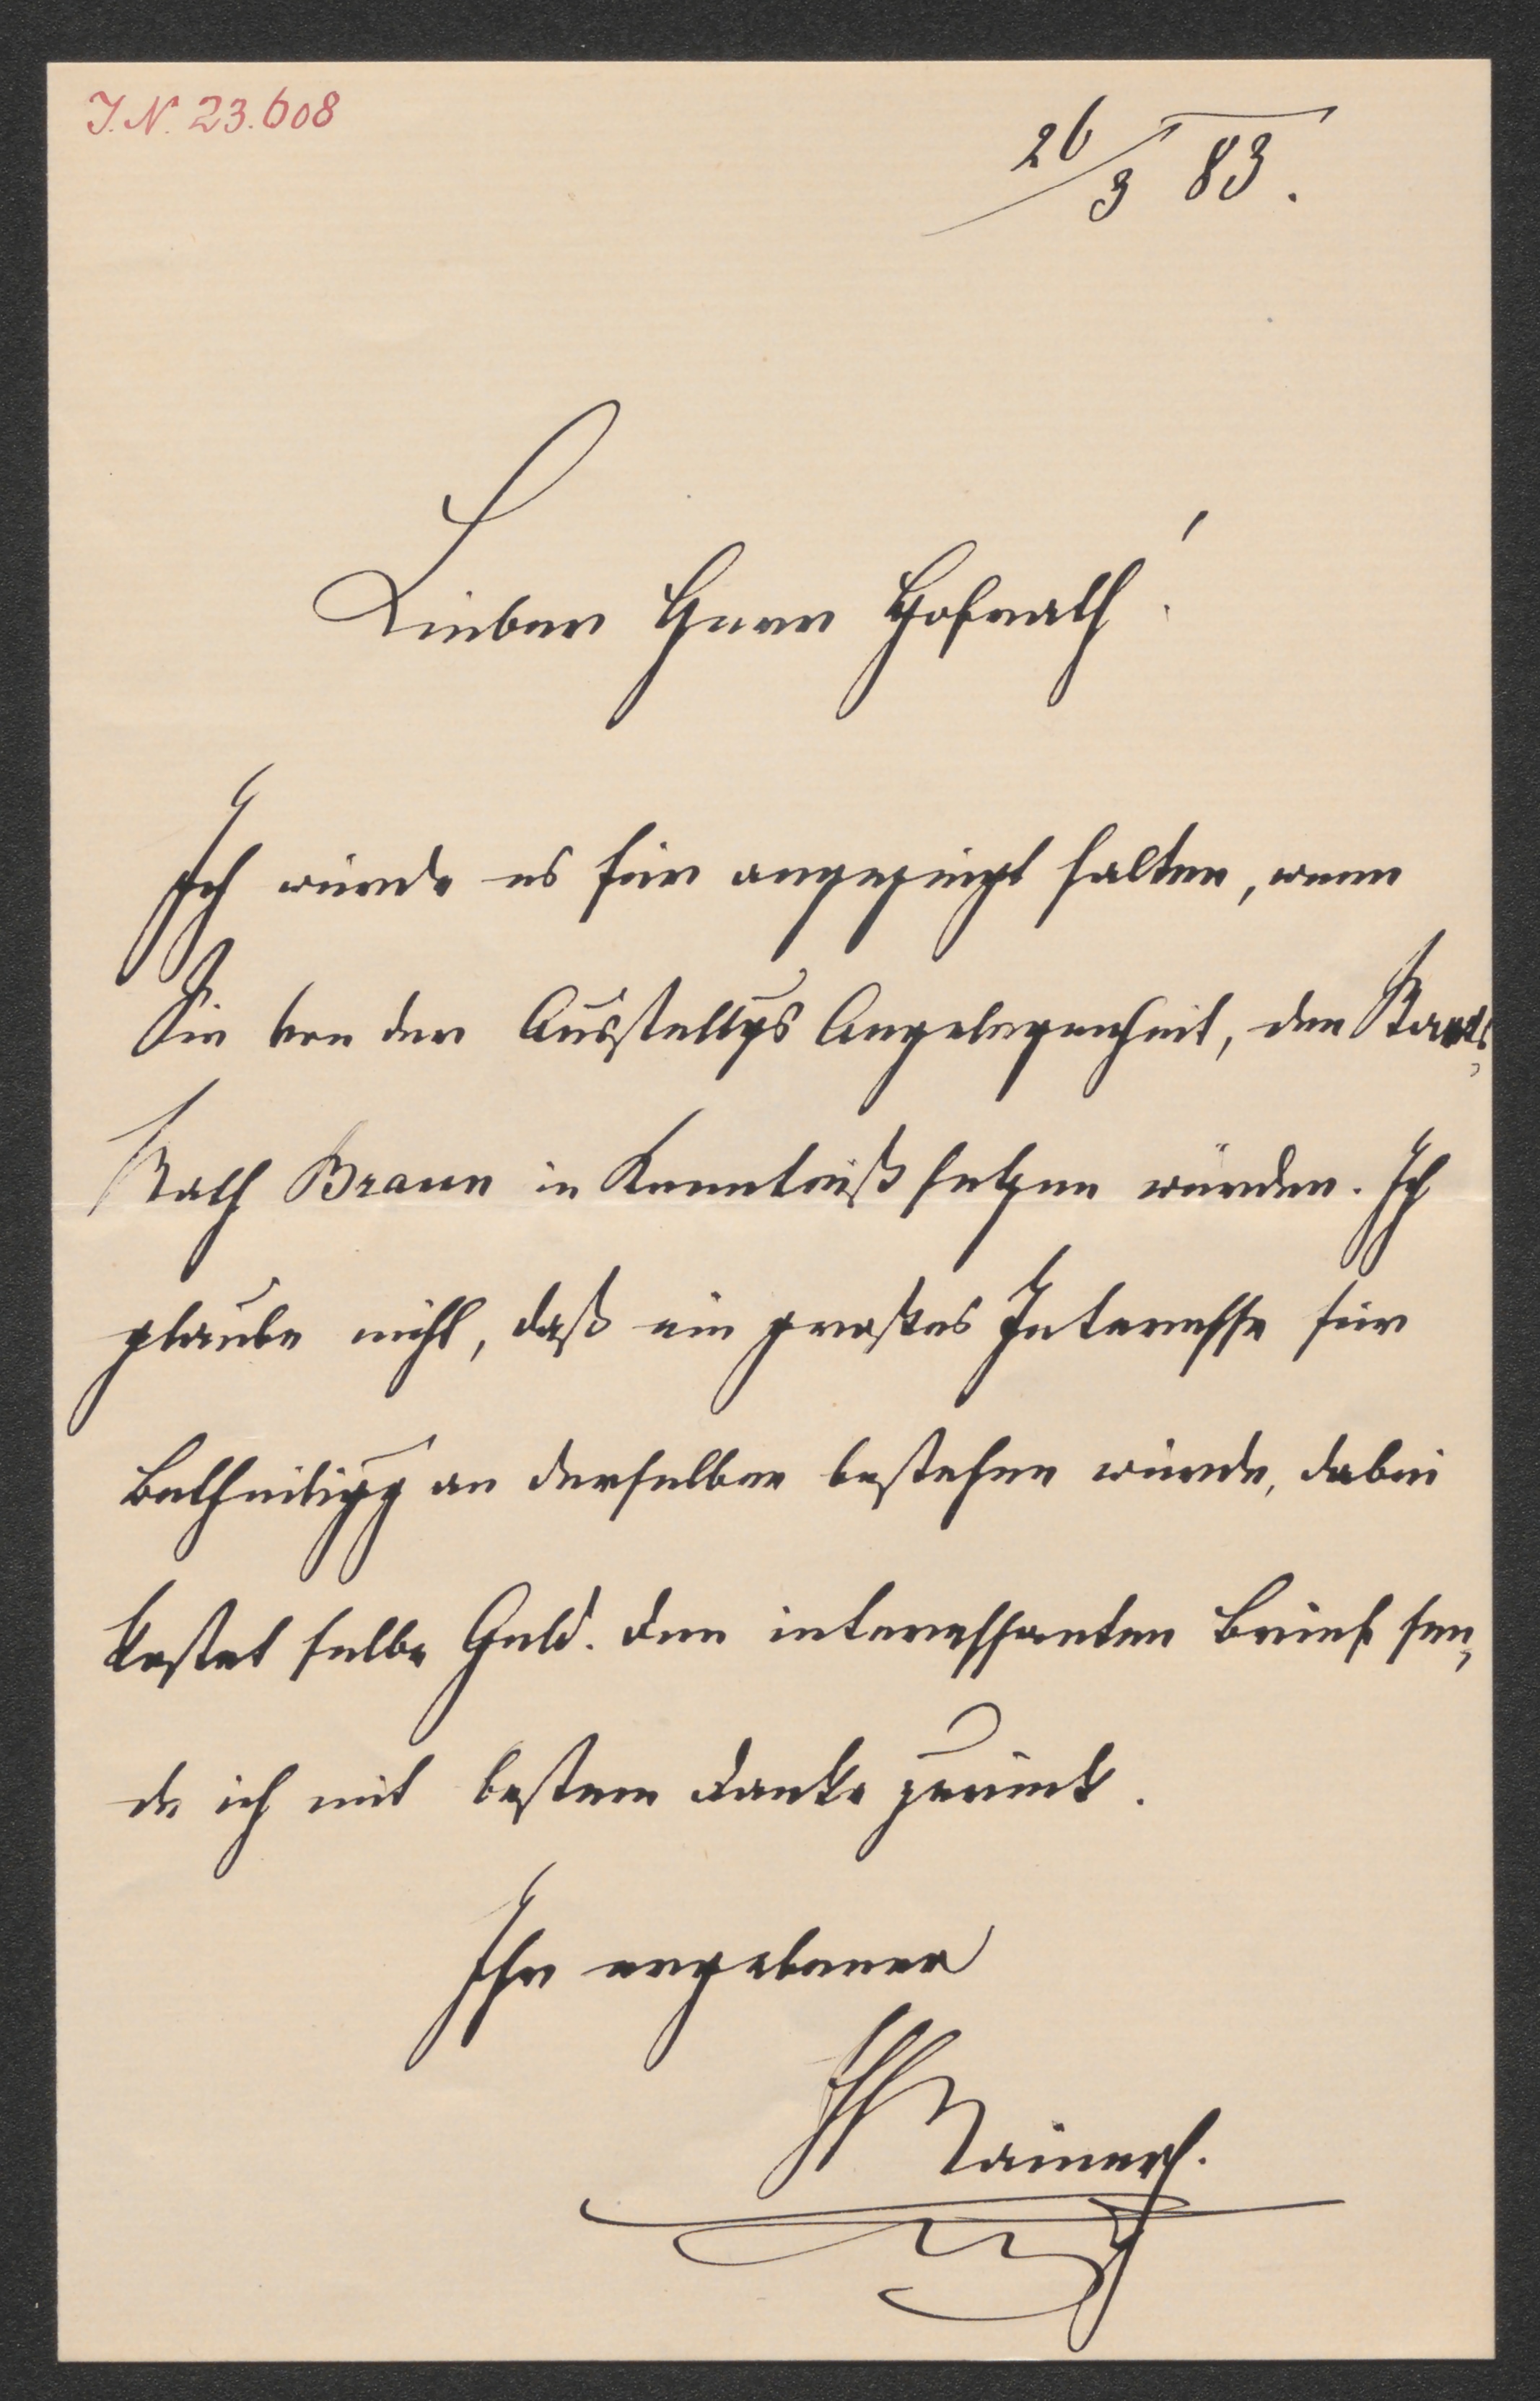 I.N. 23.608
26/3 83.
Lieber Herr Hofrath!
Ich würde es für angezeigt halten, wenn
Sie von der Ausstellgs Angelegenheit, den Staats,
Rath Braun in Kenntniß setzen würden. Ich
glaube nicht, daß ein großes Interesse für
Betheiligg an derselben bestehen würde, dabei
kostet selbe Geld. Den interessanten Brief sen,
de ich mit bestem Danke zurück.
Ihr ergebener
Rainer